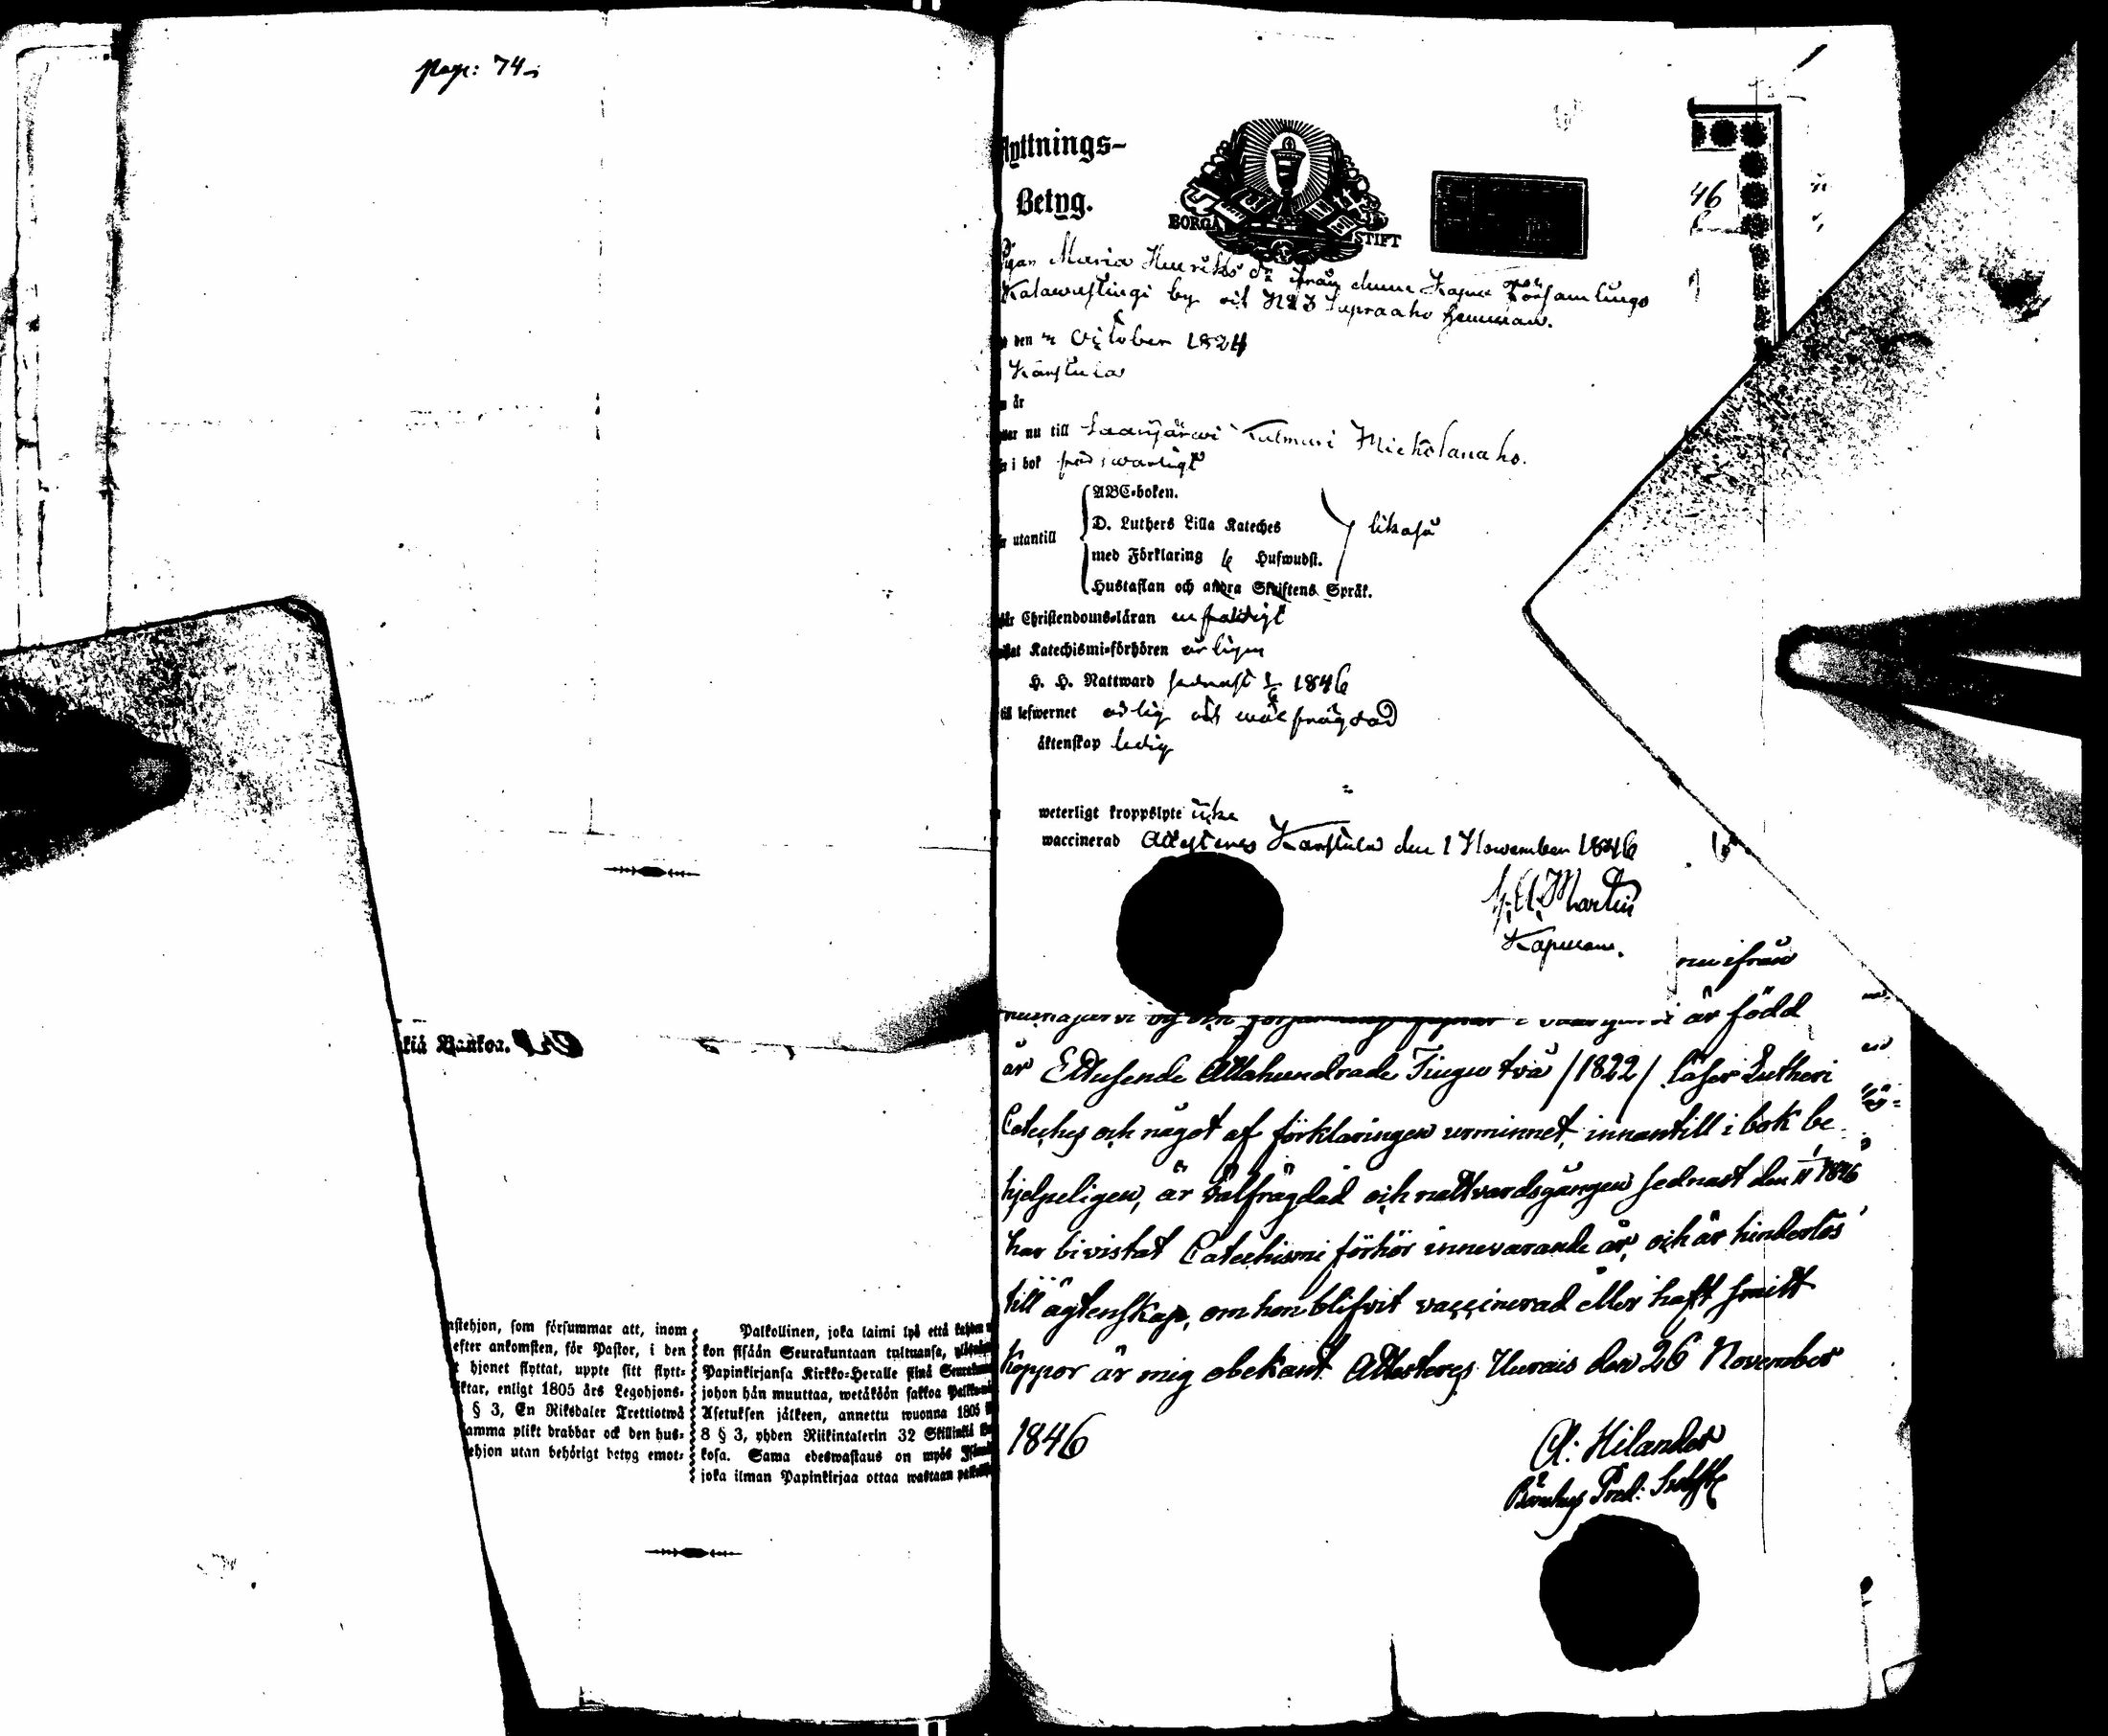 pag: 74
kiä Bankoa.
nstehjon, som försummar att, inom
efter ankomsten, för Pastor, i den
t hjonet flyttat, uppte sitt flytt-
ktar, enligt 1805 års Legohjons-
§ 3, En Riksdaler Trettiotwå
amma plikt drabbar ock den hus-
ehjon utan behörigt betyg emot-
Palkollinen, joka laimi lyö että
kon sisään Seurakuntaan tultuansa,
Papinkirjansa Kirkko-Heralle siinä
johon hän muuttaa, wetäköön sakkoa
Asetuksen jälkeen, annettu wuonna 1805
8 § 3, yhden Riikintalerin 32 Skillinkiä
kosa. Sama edeswastaus on myös
joka ilman Papinkirjaa ottaa wastaan
lyttnings-
Betyg.
BORGÅ STIFT
46
Pigan Maria Henriks dr från denna Kapell Församlings
by och N:o 3 hemman.
den October 1824
Karstula
år
nu till Saarijärwi Kulmuri Mickolanaho.
i bok försvarligt
utantill
ABC-boken.
D. Luthers Lilla Kateches
med Förklaring 6 Hufwudst.
Hustaflan och andra Skriftens Språk.
likaså
Christendoms-läran enfaldigt
Katechismi-förhören årligen
H. H. Nattward sednast 1846
till lefwernet ärlig och wälfrägdad
äktenskap ledig
weterligt kroppslyte icke
waccinerad Attesteras Karstula den 1 November 1846
Martin
Kapellan.
nu ifrån
är född
år Ettusende Attahundrade Tjugu två /1822/ läser Lutheri
Cateches och något af förklaringen urminnet, innantill i bok be
hjelpeligen, är välfrägdad och nattvardsgången sednast den 1/11 1846
har bivistat Catechismi förhör innevarande år, och är hinderlös
till ägtenskap, om hon blifvit vaccinerad eller haft smitt
koppor är mig obekant. Attesteras Uurais den 26 November
1846
A: Hilander